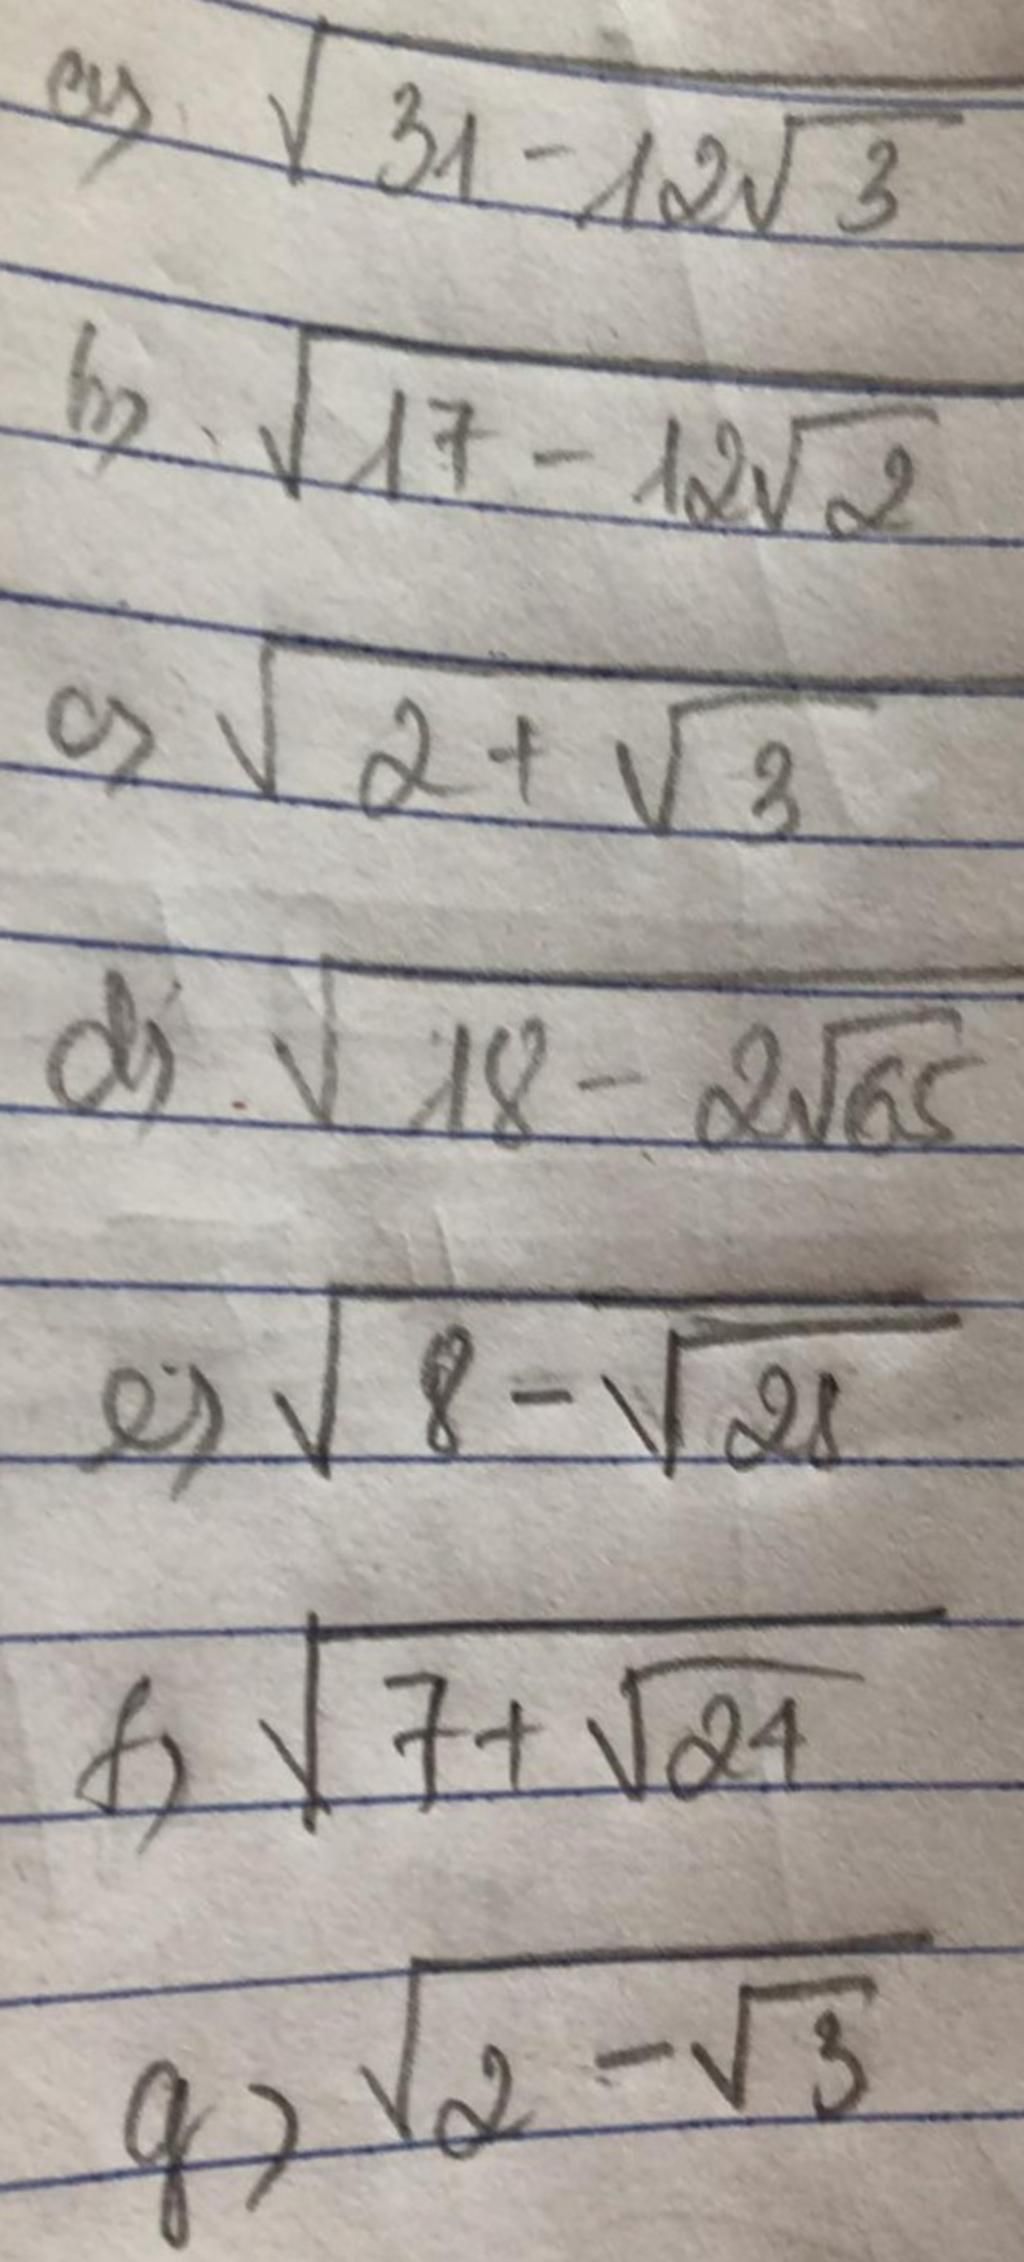 a) √(31 - 12√3)
b) √(17 - 12√2)
c) √(2 + √3)
d) √(18 - 2√65)
e) √(8 - √28)
f) √(7 + √24)
g) √(2 - √3)